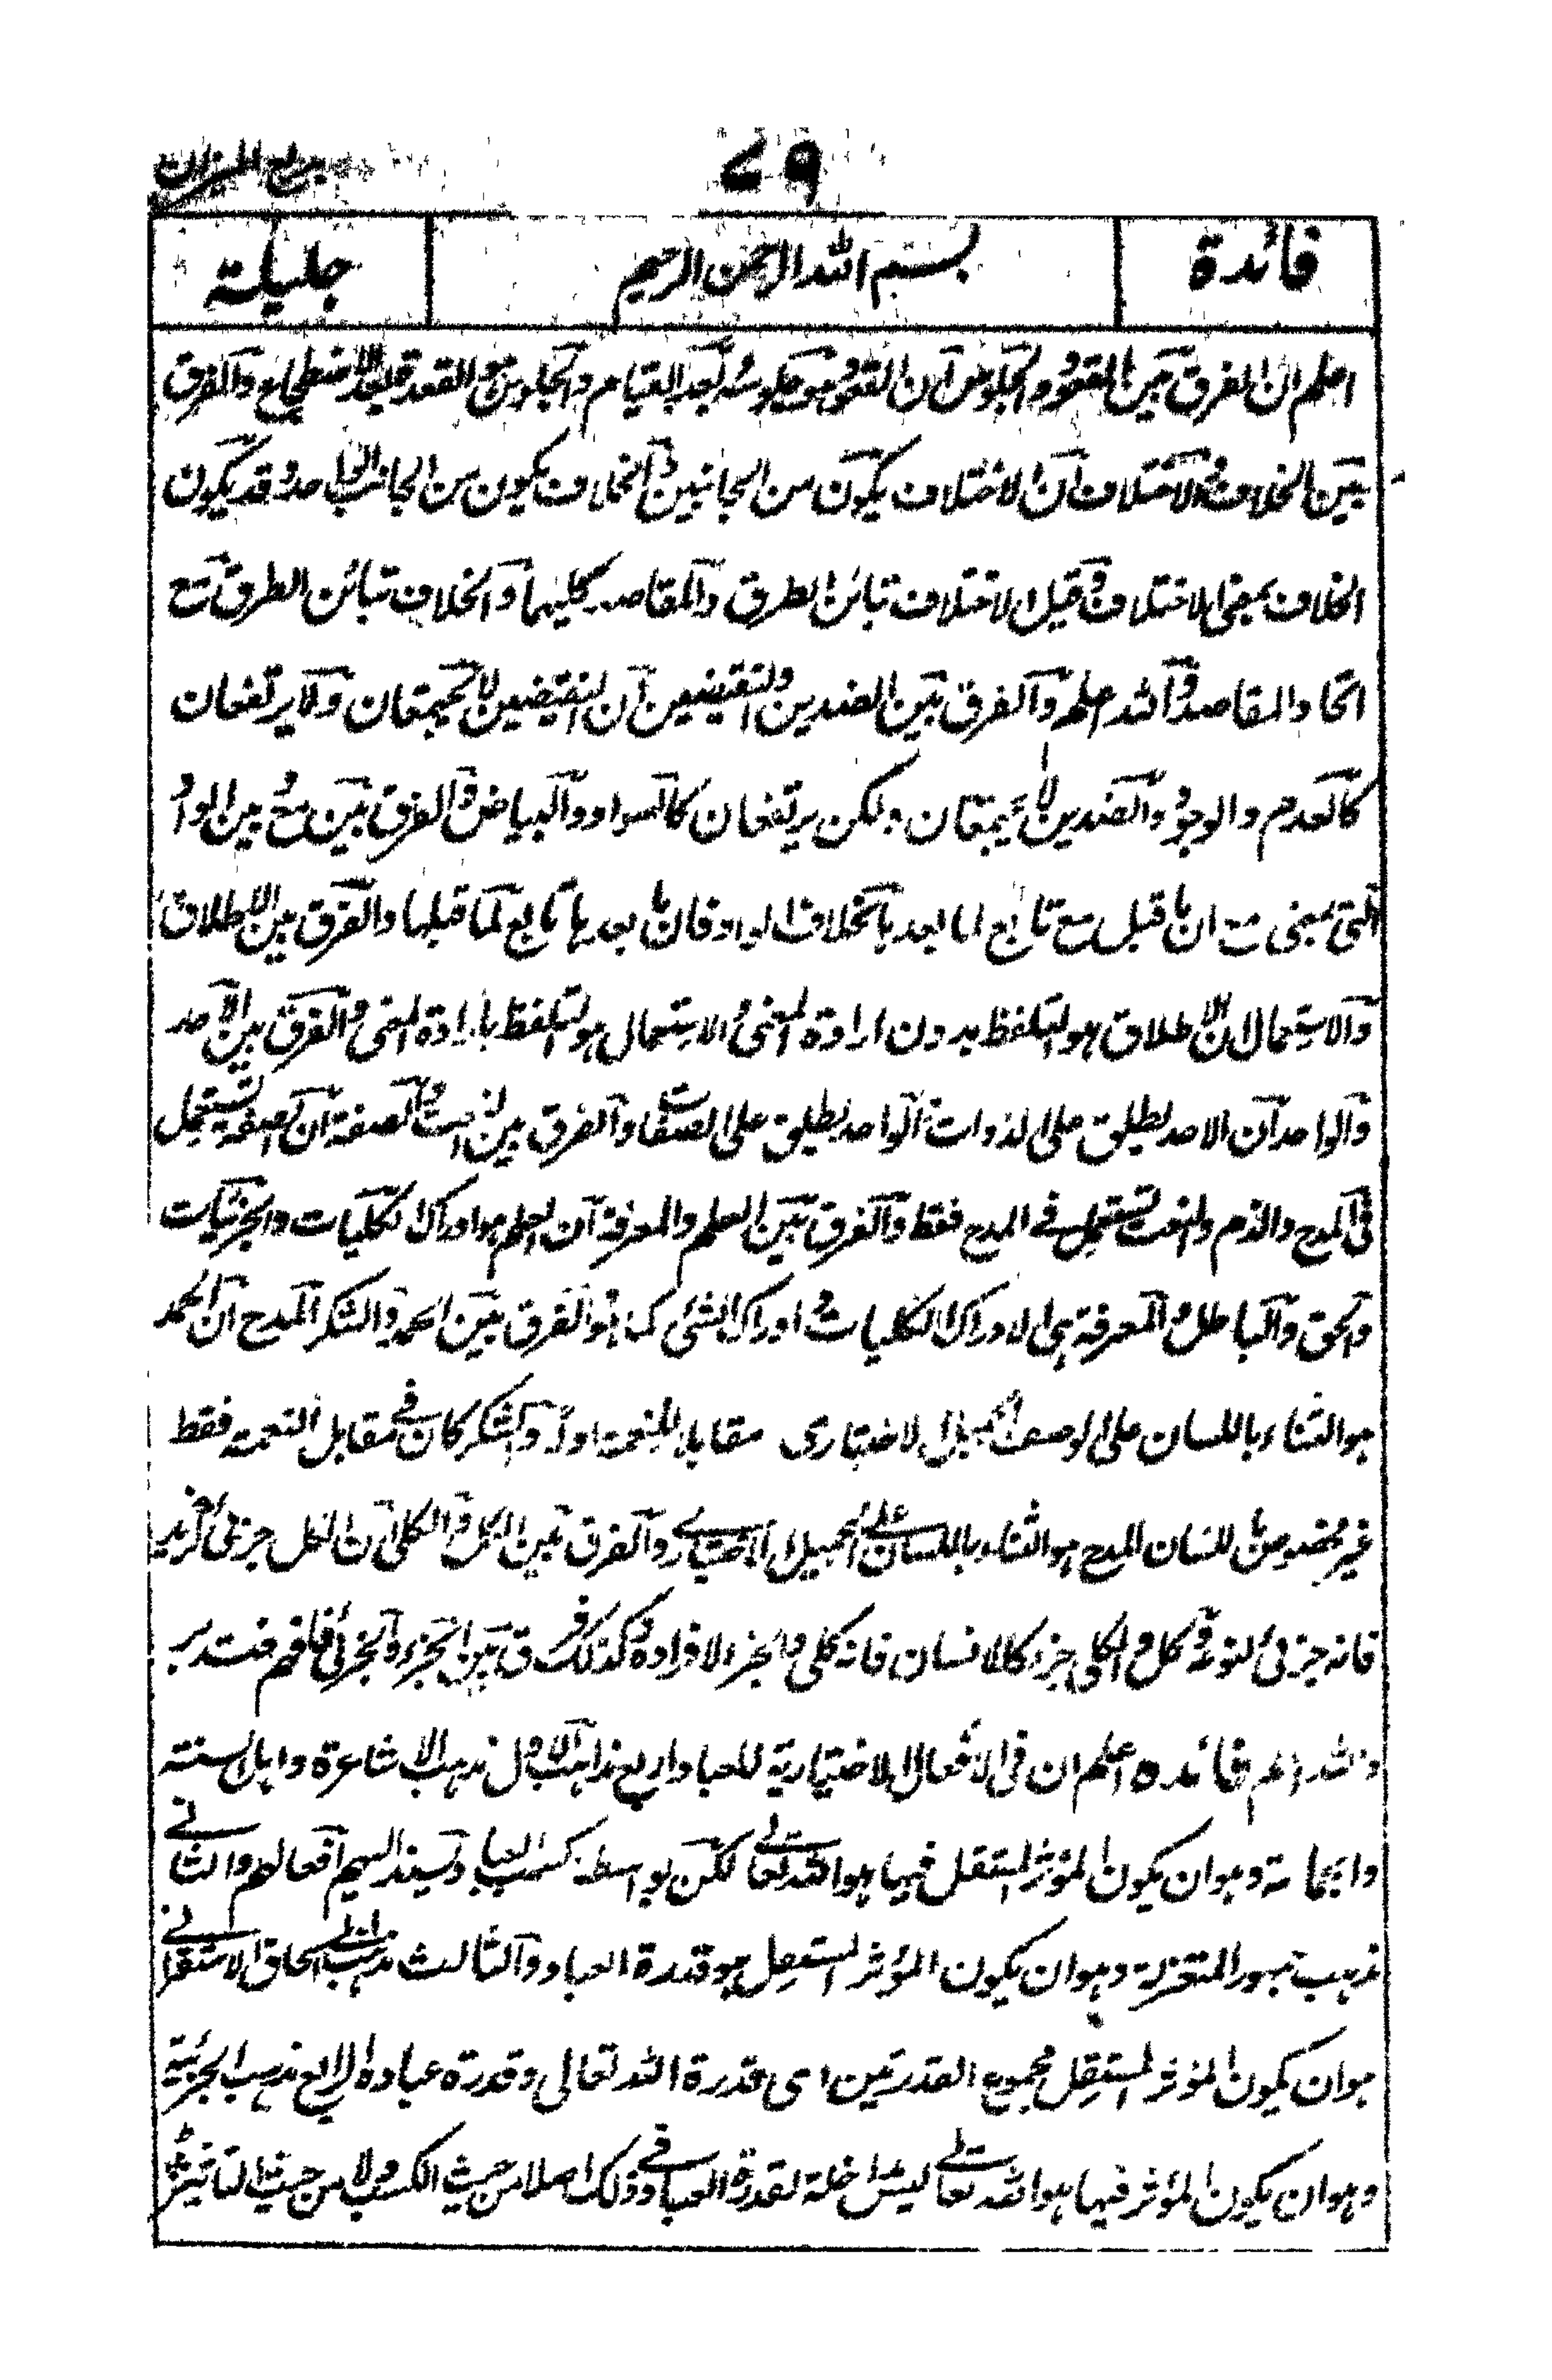 ٧٩
بديع الميزان
فائدة
بسم الله الرحمن الرحيم
جليلة
اعلم ان الفرق بين القعود والجلوس ان القعود هو جلوسه بعد القيام والجلوس هو القعدة بعد الاضطجاع والفرق
بين الخلاف والاختلاف ان الاختلاف يكون من الجانبين والخلاف يكون من الجانب الواحد وقد يكون
الخلاف بمعنى الاختلاف وقيل الاختلاف تبائن الطرق والمقاصد كليهما والخلاف تبائن الطرق مع
اتحاد المقاصد والله اعلم والفرق بين الضدين والنقيضين ان النقيضين لا يجتمعان ولا يرتفعان
كالعدم والوجود والضدين لا يجتمعان ولكن يرتفعان كالسواد والبياض والفرق بين مع وبين الواو
التى بمعنى مع ان ما قبل مع تابع لما بعدها بخلاف الواو فان ما بعدها تابع لما قبلها والفرق بين الاطلاق
والاستعمال ان الاطلاق هو التلفظ بدون ارادة المعنى والاستعمال هو التلفظ بارادة المعنى والفرق بين الاحد
والواحد ان الاحد يطلق على الذوات والواحد يطلق على الصفات والفرق بين النعت والصفة ان الصفة تستعمل
فى المدح والذم والنعت تستعمل فى المدح فقط والفرق بين العلم والمعرفة ان العلم هو ادراك الكليات والجزئيات
والحق والباطل والمعرفة هى الادراك الكليات و ادراك الشئ كما هو والفرق بين الحمد والشكر المدح ان الحمد
هو الثناء باللسان على الوصف الجميل الاختيارى مقابلا للنعمة اولا والشكر كان فى مقابل النعمة فقط
غير مخصوص للسان المدح هو الثناء باللسان على الجميل الاختيارى والفرق بين الكل والكلى ان الكل جزئى كزيد
فانه جزئى لنوعه وكل والكلى جزء كالانسان فانه كلى وجزء لافراده وكذلك فرق بين الجزء والجزئى فافهم فتدبر
والله اعلم فائده اعلم ان فى الافعال الاختيارية للعباد اربع مذاهب الاول مذهب الاشاعرة واهل السنة
والجماعة وهو ان يكون المؤثر المستقل فيها هو الله تعالى لكن بواسطة كسب العباد وتسند اليهم افعالهم والثانى
مذهب جمهور المعتزلة وهو ان يكون المؤثر المستقل هو قدرة العباد والثالث مذهب ابى اسحاق الاسفرائنى
هو ان يكون المؤثر المستقل مجموع القدرتين اى قدرة الله تعالى وقدرة عباده الرابع مذهب الجبرية
وهو ان يكون المؤثر فيها هو الله تعالى ليس مداخلة لقدرة العباد فى ذلك اصلا من حيث الكسب ولا من حيث التاثير